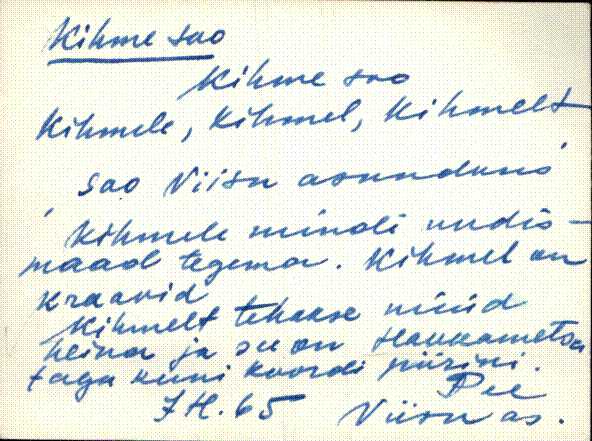 Kihme soo
Kihme soo
Kihmele, Kihmel, Kihmelt
'soo Viisu asunduses'
Kihmele mindi uudis-
maad tegema. Kihmel on
kraavid
Kihmelt tehakse nüüd
heina ja see on
taga kuni koordi piirini.
Pee
JH. 65 Viisu as.